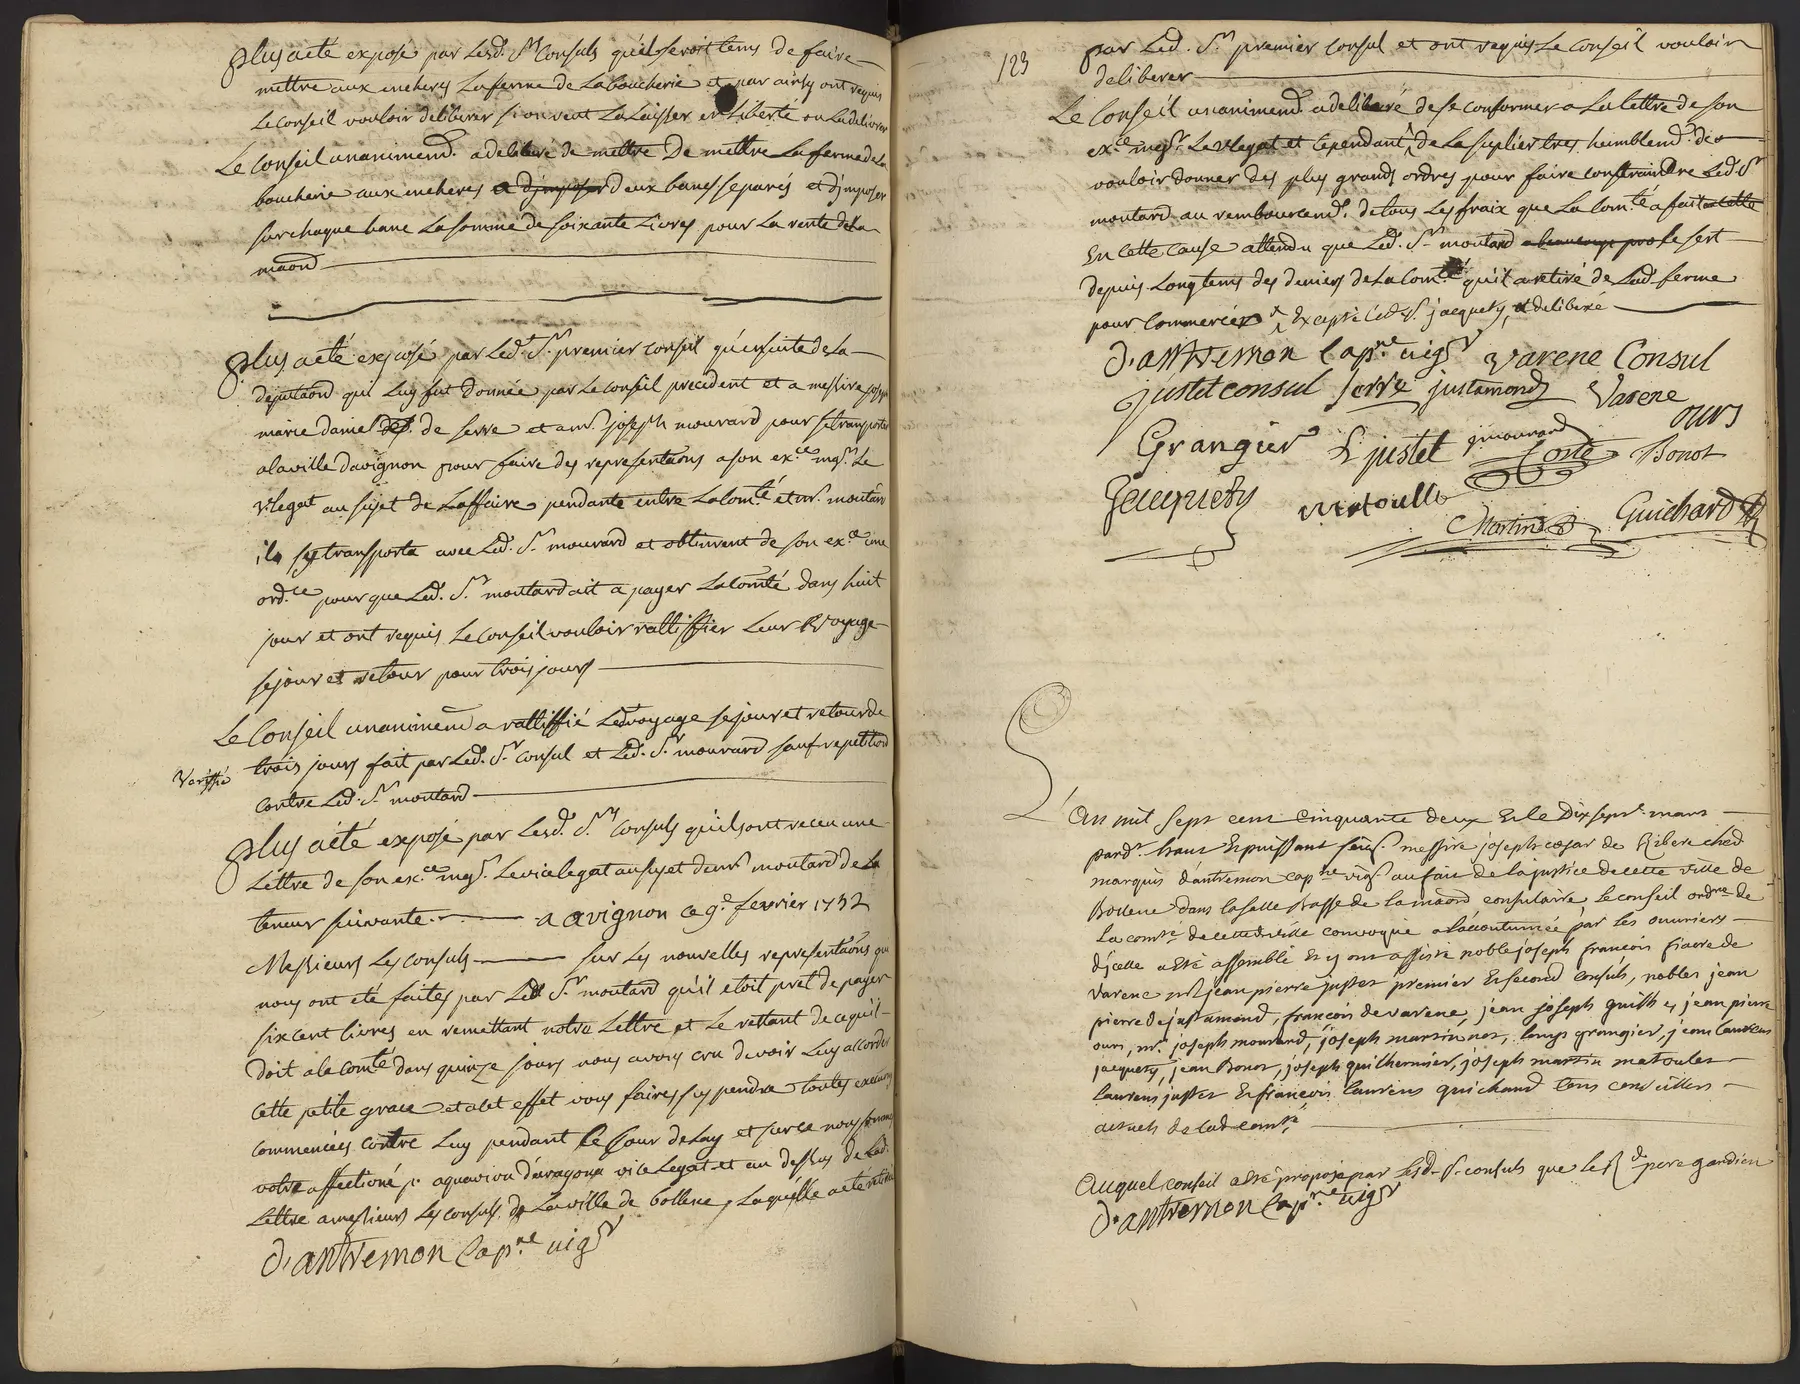 plus a eté exposé par Lesd. Srs Consuls qu'il seroit tems de faire
mettre aux encheres La ferme de La boucherie et par ainsy ont requis
Le Conseil vouloir deliberer si on veut La Laisser en Liberté ou La delivrer
Le Conseil unanimemt. a deliberé de mettre De mettre La ferme de La
boucherie aux encheres a d'imposer deux bancs separés et d'imposer
sur chaque banc La somme de soixante Livres pour La rente de La
maond
plus a eté exposé par Led. Sr premier Consul qu'ensuite de La
deputaôn qui Luy fut donnée par Le Conseil precedent et a messire joseph
marie daniel de Serre et a mr. joseph mourard pour se transporter
a la ville d'avignon pour faire des representaôns a son exce. mgr. Le
v. legat au sujet de L'affaire pendante entre La Comté et mr. moutard
ils se transporta avec Led. Sr. mourard et obtinrent de son exce une
ordce pour que Led. Sr. moutard ait a payer La Comté dans huit
jour et ont requis Le Conseil vouloir rattiffier Leur Voyage
sejour et retour pour trois jours
Le Conseil unanimemt a rattiffié Led voyage sejour et retour de
trois jours fait par Led. Sr Consul et Led. Sr mourard sauf repetition
Contre Led. Sr moutard
plus a eté exposé par Lesd. Srs Consuls qu'ils ont receu une
Lettre de son exce mgr. Le vicelegat au sujet dud. Sr moutard de La
teneur suivante. a avignon ce 9e fevrier 1752
Messieurs Les Consuls sur Les nouvelles representaôns que
nous ont eté faites par Led Sr moutard qu'il etoit pret de payer
six cent livres en remettant notre Lettre et Le restant de ce qu'il
doit a la Comté dans quinze jours nous avons cru devoir Luy accorder
Cette petite grace et a cet effet vous faires suspendre toutes
commencées Contre Luy pendant Le jour delay et sur ce nous sommes
votre affectioné p. aquaviva d'aragona vice Legat et au dessus de Lad.
Lettre a messieurs Les Consuls de La ville de bollene, Laquelle a eté
d'antremon Capne vigr
123
par Led. Sr premier Consul et ont requis Le Conseil vouloir
deliberer
Le Conseil unanimemt a deliberé de se conformer a La Lettre de son
exce mgr. Le v legat et Cependant de Le suplier tres humblemt. de
vouloir donner des plus grands ordres pour faire constraindre Led. Sr
moutard au remboursemt. de tous Les fraix que La Comté a fait a cette
En Cette Cause attendu que Led. Sr moutard a beaucoup pro se sert
depuis Longtems des deniers de La Comté qu'il a retiré de Lad. ferme
pour Commercer Excepté Led. Sr. jacquety, a deliberé
d'antremon Capne vigr Varene Consul
justet consul Serre justamond Varene
ours
Grangier L justet gmourard
Coste Bonot
Jacquety matoulle
Martin Guichard
L'An mil sept cent Cinquante deux & le Dixsept mars
pardt. haut & puissant seigr. messire joseph cœsar de
marquis d'antremon capne vigr au fait de la justice de cette ville de
Bollene dans la salle Basse de la maôn consulaire, le conseil ordre de
La comté de cette ville convoqué a l'acoutumée par les ouvriers
d'jcelle a esté assemblé & y ont assisté noble joseph francois fiacre de
Varene mr jean pierre justet premier & second consuls, nobles jean
pierre de justamond, francois de varene, jean joseph guilhes, jean pierre
ours, mr. joseph mourard, joseph martin, Louys grangier, jean laurens
jacquety, jean Bonot, joseph guilhermier, joseph martin matoulet
Laurens justet & francois laurens guichard tous conseillers
actuels de lad. comté
Auquel conseil a esté proposé par lesd. Srs. consuls que le Rd pere gardien
d'antremon Capne vigr
Verifié